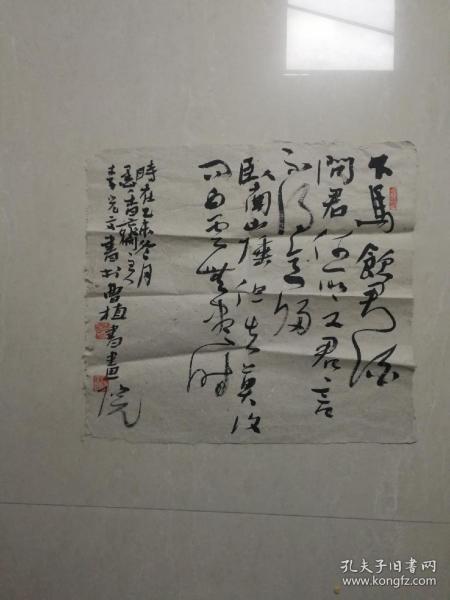 下馬飲君酒
問君何所之君言
不得意歸
臥南山陲但去莫復
问白雲無盡時
時在乙未冬月
墨香齋主
文書於曹植書畫院
孔夫子旧书网
www.kongfz.com